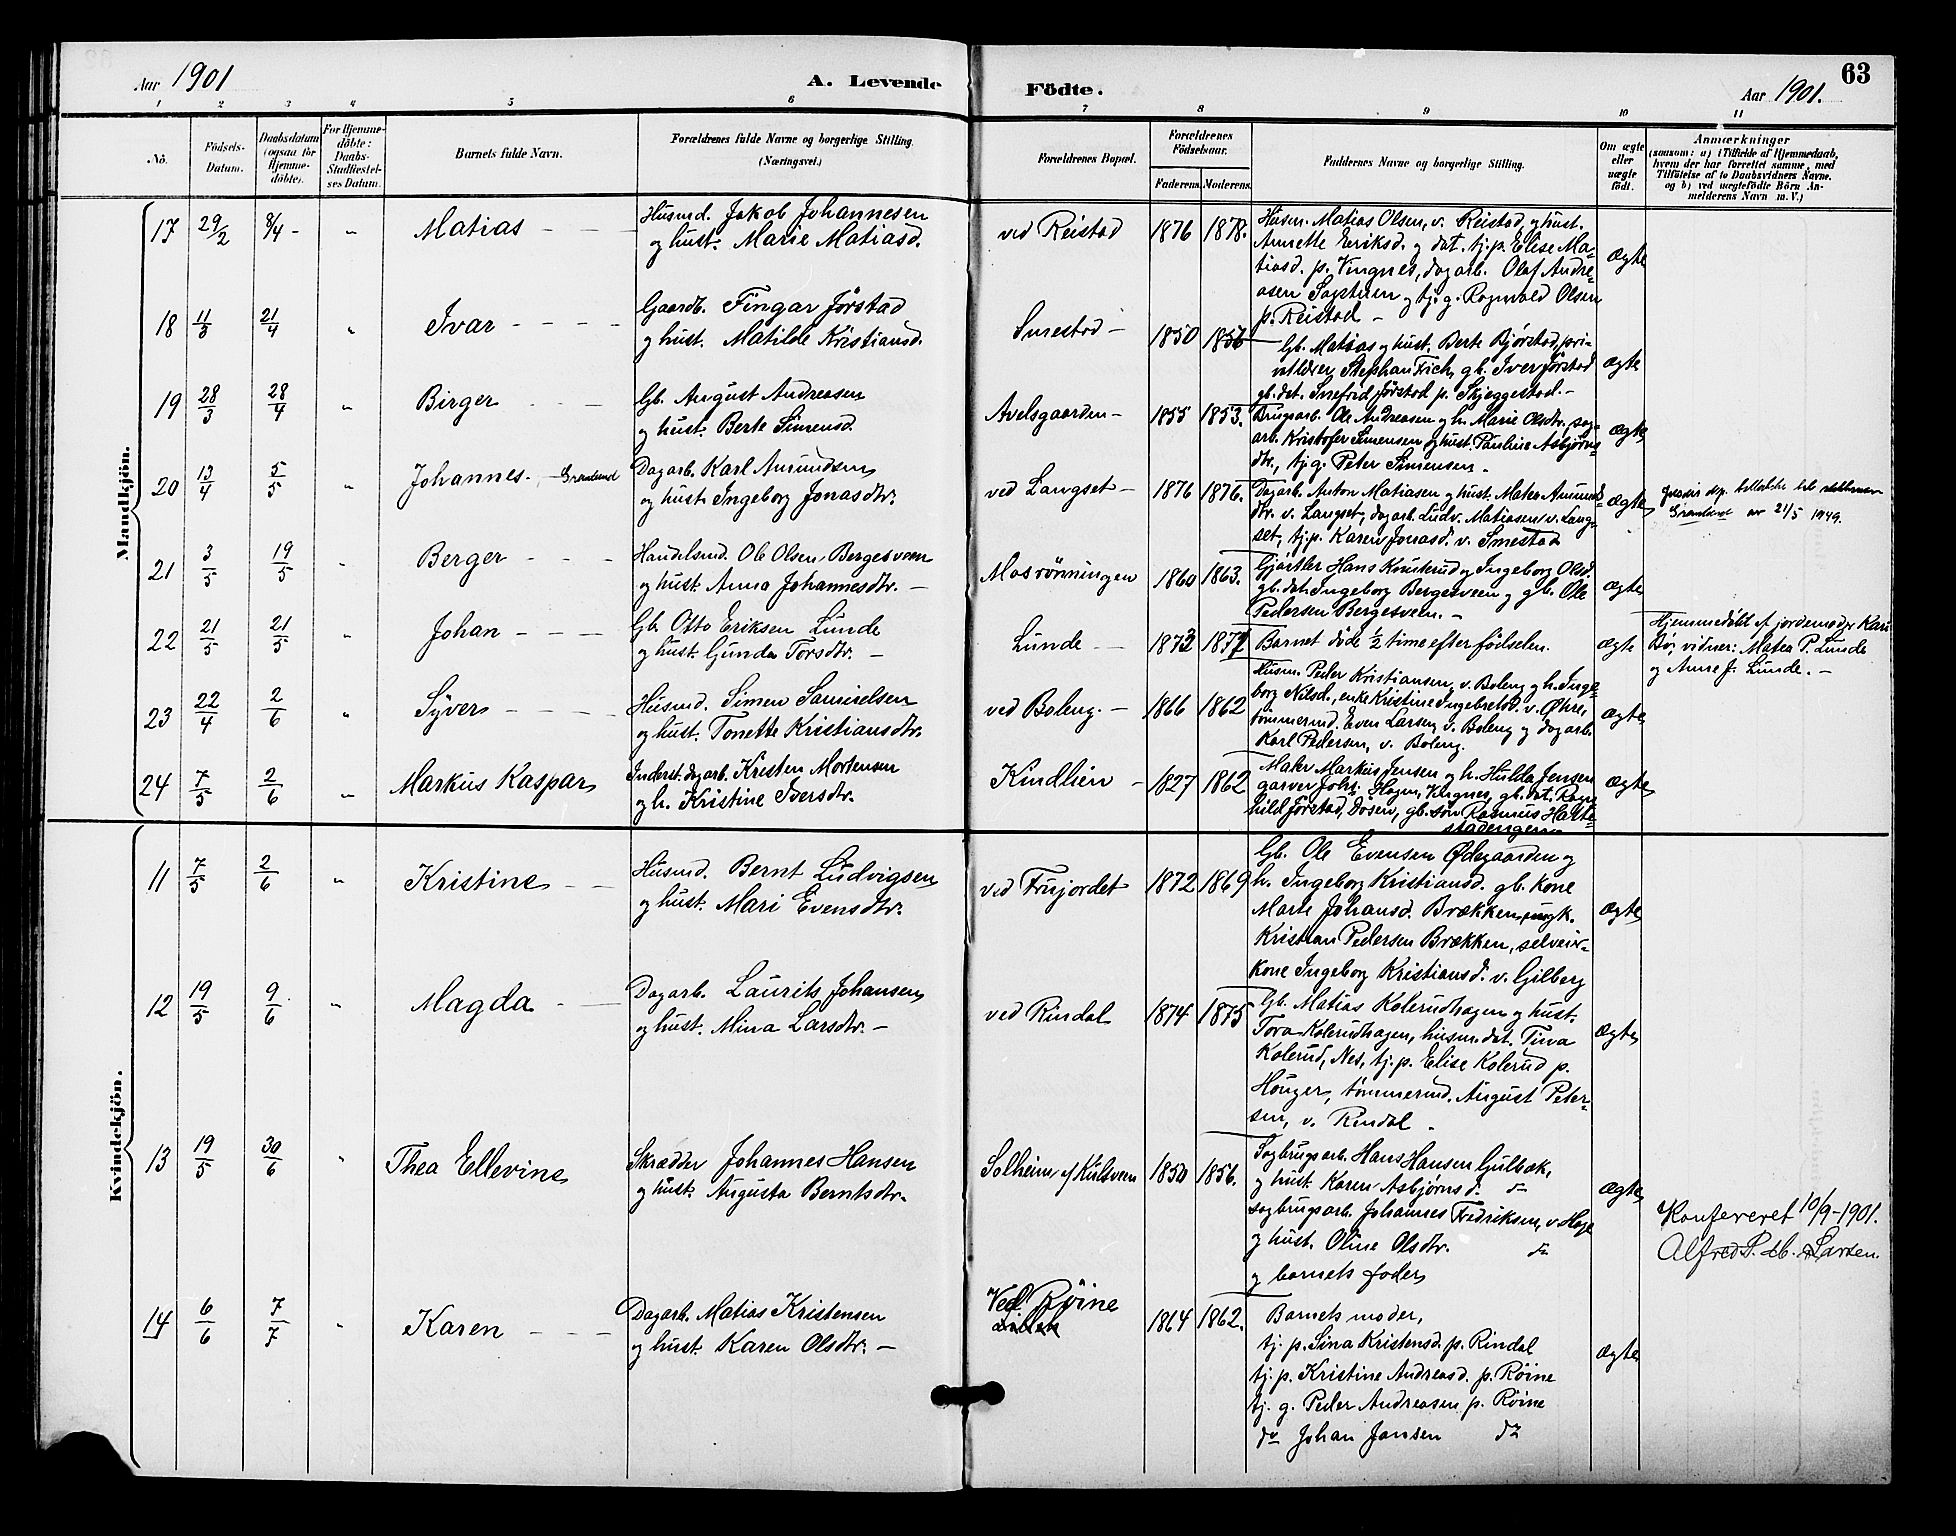 Aar 1901
A. Levende Födte.
Aar 1901.
63
1 2 3 4 5 6 7 8 9 10 11
No.
Födsels-
Datum.
Daabsdatum
(ogsaa for
Hjemme-
döbte).
For Hjemme-
döbte:
Daabs-
Stadfæstel-
ses Datum.
Barnets fulde Navn.
Forældrenes fulde Navne og borgerlige Stilling.
(Næringsvei.)
Forældrenes Bopæl.
Forældrenes
Födselsaar.
Faderens. Moderens.
Faddernes Navne og borgerlige Stilling.
Om ægte
eller
uægte
født.
Anmærkninger
(saasom: a) i Tilfælde af Hjemmedaab,
hvem der har forrettet samme, med
Tilföielse af to Daabsvidners Navne.
og b) ved uægtefödte Börn An-
melderens Navn m.V.)
Mandkjön.
17 29/2 8/4 - " Matias - - -
Husmd. Jakob Johannesen
og hust. Marie Matiasd.
ved Reistad 1876 1878.
Husm. Matias Olsen, v. Reistad, og hust.
Annette Eeriksd. og dat. tj. p. Elise Ma-
tiasd. p. Vingnes, dagarb. Olaf Andre-
asen Sagstuen og tj. g. Ragnvald Olsen
p. Reistad -
ægte
18 11/3 21/4 " Ivar - - - -
Gaardb. Fingar Jörstad
og hust. Matilde Kristiansd.
Smestad - 1850 1856
Gb. Matias og hust. Berte Bjørstad, pri-
vatlærer Stephan Fich, gb. Iver Jörstad
gb. dat. Snefrid Jörstad p. Skjeggestad. -
ægte
19 28/3 28/4 " Birger - - -
Gb. August Andreasen
og hust. Berte Simensd.
Avelsgaarden - 1855 1853.
Brugsarb. Ole Andreasen og h. Marie Olsdtr, sag-
arb. Kristofer Simensen og hust. Pauline Asbjørns-
dtr, tj. g. Peter Simensen. -
ægte
20 13/4 5/5 " Johannes. - Grønlund
Dagarb. Karl Amundsen
og hust. Ingeborg Jonasdtr.
ved Langset - 1876 1876.
Dagarb. Anton Matiasen og hust. Mater Amunds-
dtr. v. Langset, dagarb. Ludv. Matiasen v. Lang-
set, tj. p. Karen Jonasd. v. Smestad
ægte
Grønlund av 21/5 1949.
21 3/5 19/5 " Berger - - -
Handelsmd. Ole Olsen Bergesveen
og hust. Anna Johannesdtr. -
Mosrønningen 1860 1863.
Gjørtler Hans Knuterud og Ingeborg Olsd.
gb. dat. Ingeborg Bergesveen og gb. Ole
Pedersen Bergesveen. -
ægte
22 21/5 21/5 " Johan - - -
Gb. Otto Eriksen Lunde
og hust. Gunda Torsdtr. -
Lunde - - 1873 1872
Barnet döde ½ time efter födselen.
ægte
Hjemmedöbt af jordemoder Kari
Bö, vidner: Matea P. Lunde
og Anne J. Lunde. -
23 22/4 2/6 " Syver - - - -
Husmd. Simen Samuelsen
og hust. Tonette Kristiansdtr.
ved Boleng. - 1866 1862
Husm. Peder Kristiansen, v. Boleng og h. Inge-
borg Nilsd., enke Kristine Ingebretsd. v. Øhre,
tømmermd. Even Larsen, v. Boleng og dagarb.
Karl Pedersen, v. Boleng.
ægte
24 7/5 2/6 " Markus Kaspar
Inderst. dagarb. Kristen Mortensen
og h. Kristine Iversdtr.
Kindlien - 1827 1862
Maler Markus Jensen og h. Hulda Jensen
garver Johs. Hagen, Vingnes, gb. dat. Ragn-
hild Jörstad, Dösen, gb. sön Rasmus Hatte-
stadengen
ægte
Kvindekjön.
11 7/5 2/6 " Kristine - -
Husmd. Bernt Ludvigsen
og hust. Mari Evensdtr.
ved Frujordet 1872 1869
Gb. Ole Evensen Ødegaarden og
h. Ingeborg Kristiansd. gb. kone
Marte Johansd. Brækken, ungk.
Kristian Pedersen Brækken, selveier-
kone Ingeborg Kristiansd. v. Gilberg
ægte
12 19/5 9/6 " Magda - -
Dagarb. Laurits Johansen
og hust. Mina Larsdtr. -
ved Rindal 1874 1875
Gb. Matias Kolerudhagen og hust.
Tora Kolerudhagen, husm. dat. Tina
Kolerud, Nes, tj. p. Elise Kolerud p.
Houger, tømmermd. August Peter-
sen, v. Rindal -
ægte
13 19/5 30/6 " Thea Ellevine
Skrædder Johannes Hansen
og hust. Augusta Berntsdtr.
Solheim af Kulsveen 1850 1856.
Sagbrugsarb. Hans Hansen Gulbæk,
og hust. Karen Asbjørnsd. do
sagbrugsarb. Johannes Fredriksen, v. Hage
og hust. Oline Olsdtr. do
og barnets fader
ægte
Konfereret 10/9-1901.
Alfred P. Larsen
14 6/6 7/7 " Karen - - -
Dagarb. Matias Kristensen
og hust. Karen Olsdtr. -
Ved Röine
1864 1862.
Barnets moder,
tj. p. Sina Kristensd. p. Rindal
tj. p. Kristine Andreasd. p. Röine
tj. g. Peder Andreasen p. Röine
do Johan Jansen do
ægte